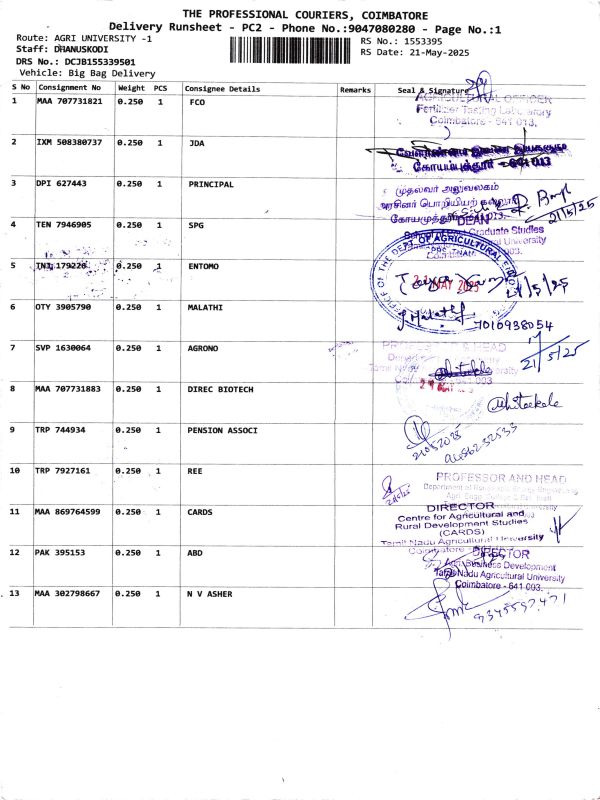 THE PROFESSIONAL COURIERS, COIMBATORE
Delivery Runsheet - PC2 - Phone No.:9047080280 - Page No.:1
Route: AGRI UNIVERSITY -1
Staff: DHANUSKODI
DRS No.: DCJB155339501
Vehicle: Big Bag Delivery
RS No.: 1553395
RS Date: 21-May-2025
S No Consignment No Weight PCS Consignee Details Remarks Seal & Signature
1 MAA 707731821 0.250 1 FCO
AGRICULTURAL OFFICER
Fertilizer Testing Laboratory
Coimbatore - 641 013.
2 IXM 508380737 0.250 1 JDA
கோயம்புத்தூர் - 641 013
3 DPI 627443 0.250 1 PRINCIPAL
முதல்வர் அலுவலகம்
அரசினர் பொறியியற் கல்லூரி
21/5/25
4 TEN 7946905 0.250 1 SPG
DEAN
School of Post Graduate Studies
5 TNI 179220 0.250 1 ENTOMO
21 MAY 2025
21/5/25
6 OTY 3905790 0.250 1 MALATHI
7010938054
7 SVP 1630064 0.250 1 AGRONO
PROFESSOR & HEAD
21/5/25
8 MAA 707731883 0.250 1 DIREC BIOTECH
9 TRP 744934 0.250 1 PENSION ASSOCI
10 TRP 7927161 0.250 1 REE
PROFESSOR AND HEAD
11 MAA 869764599 0.250 1 CARDS
DIRECTOR
Centre for Agricultural and
Rural Development Studies
(CARDS)
Tamil Nadu Agricultural University
12 PAK 395153 0.250 1 ABD
Coimbatore
DIRECTOR
Agri Business Development
Tamil Nadu Agricultural University
Coimbatore - 641 003.
13 MAA 302798667 0.250 1 N V ASHER